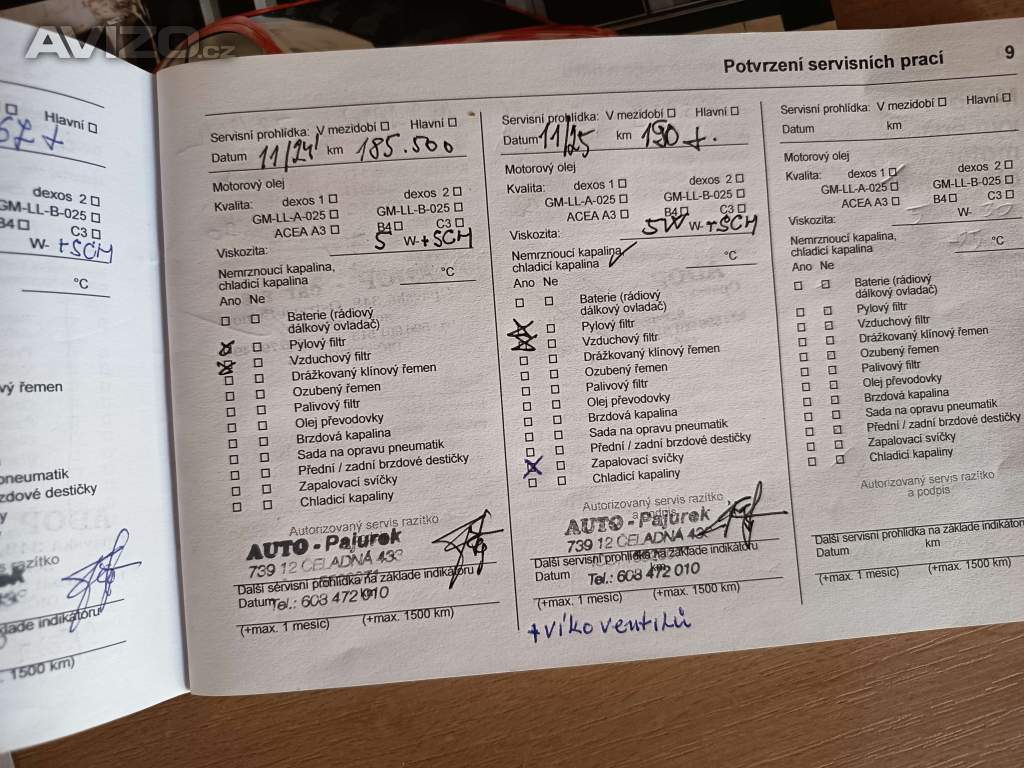 AVIZO.cz
Potvrzení servisních prací 9
Hlavní
dexos 2
GM-LL-B-025
B4 C3
W- + SCM
°C
vý řemen
pneumatik
zdové destičky
s razítko
klade indikátoru
. 1500 km)
Servisní prohlídka: V mezidobí Hlavní
Datum 11/24 km 185.500
Motorový olej
Kvalita: dexos 1 dexos 2
GM-LL-A-025 GM-LL-B-025
ACEA A3 B4 C3
Viskozita: 5 W- + SCM
Nemrznoucí kapalina,
chladicí kapalina °C
Ano Ne
Baterie (rádiový
dálkový ovladač)
Pylový filtr
Vzduchový filtr
Drážkovaný klínový řemen
Ozubený řemen
Palivový filtr
Olej převodovky
Brzdová kapalina
Sada na opravu pneumatik
Přední / zadní brzdové destičky
Zapalovací svíčky
Chladicí kapaliny
Autorizovaný servis razítko
AUTO - Pajurek
739 12 ČELADNÁ 433
Další servisní prohlídka na základe indikátoru
Datum km
Tel.: 608 472 010
(+max. 1 mesíc) (+max. 1500 km)
Servisní prohlídka: V mezidobí Hlavní
Datum 11/25 km 190 t.
Motorový olej
Kvalita: dexos 1 dexos 2
GM-LL-A-025 GM-LL-B-025
ACEA A3 B4 C3
Viskozita: 5W W- + SCM
Nemrznoucí kapalina,
chladicí kapalina °C
Ano Ne
Baterie (rádiový
dálkový ovladač)
Pylový filtr
Vzduchový filtr
Drážkovaný klínový řemen
Ozubený řemen
Palivový filtr
Olej převodovky
Brzdová kapalina
Sada na opravu pneumatik
Přední / zadní brzdové destičky
Zapalovací svíčky
Chladicí kapaliny
Autorizovaný servis razítko
a podpis
AUTO - Pajurek
739 12 ČELADNÁ 433
Další servisní prohlídka na základe indikátoru
Datum km
Tel.: 608 472 010
(+max. 1 mesíc) (+max. 1500 km)
+ víko ventilů
Servisní prohlídka: V mezidobí Hlavní
Datum km
Motorový olej
Kvalita: dexos 1 dexos 2
GM-LL-A-025 GM-LL-B-025
ACEA A3 B4 C3
Viskozita: W-
Nemrznoucí kapalina,
chladicí kapalina °C
Ano Ne
Baterie (rádiový
dálkový ovladač)
Pylový filtr
Vzduchový filtr
Drážkovaný klínový řemen
Ozubený řemen
Palivový filtr
Olej převodovky
Brzdová kapalina
Sada na opravu pneumatik
Přední / zadní brzdové destičky
Zapalovací svíčky
Chladicí kapaliny
Autorizovaný servis razítko
a podpis
Další servisní prohlídka na základe indikátoru
Datum km
(+max. 1 mesíc) (+max. 1500 km)